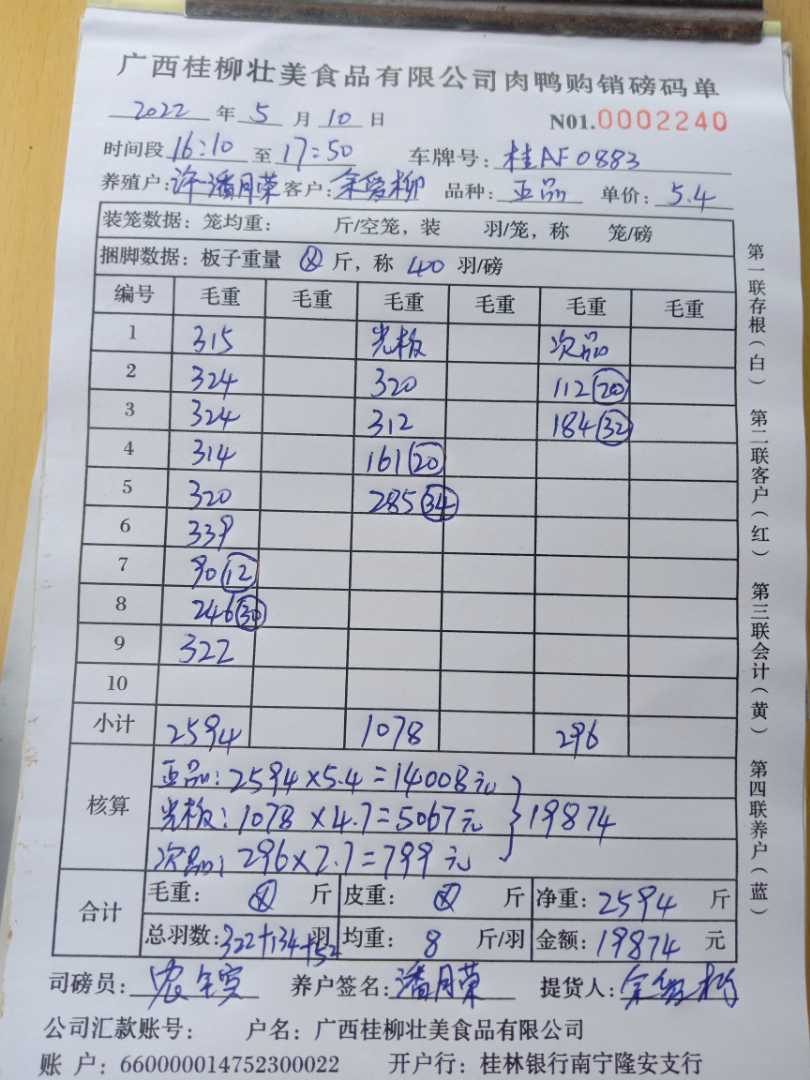 广西桂柳壮美食品有限公司肉鸭购销磅码单
2022 年 5 月 10 日 N01.0002240
时间段 16:10 至 17:50 车牌号: 桂AF0883
养殖户: 许潘月荣 客户: 品种: 正品 单价: 5.4
装笼数据: 笼均重: 斤/空笼, 装 羽/笼, 称 笼/磅
捆脚数据: 板子重量 ⊗ 斤, 称 40 羽/磅
编号 毛重 毛重 毛重 毛重 毛重 毛重
1 315 光板 次品
2 324 320 112 20
3 324 312 184 32
4 314 161 20
5 320 285 34
6 339
7 90 12
8 246 30
9 322
10
小计 2594 1078 296
核算
正品: 2594×5.4=14008元
光板: 1078×4.7=5067元 } 19874
次品: 296×2.7=799元
合计
毛重: ⊗ 斤 皮重: ⊗ 斤 净重: 2594 斤
总羽数: 322+134+52 羽 均重: 8 斤/羽 金额: 19874 元
司磅员: 养户签名: 潘月荣 提货人:
公司汇款账号: 户名: 广西桂柳壮美食品有限公司
账 户: 660000014752300022 开户行: 桂林银行南宁隆安支行
第一联存根(白) 第二联客户(红) 第三联会计(黄) 第四联养户(蓝)